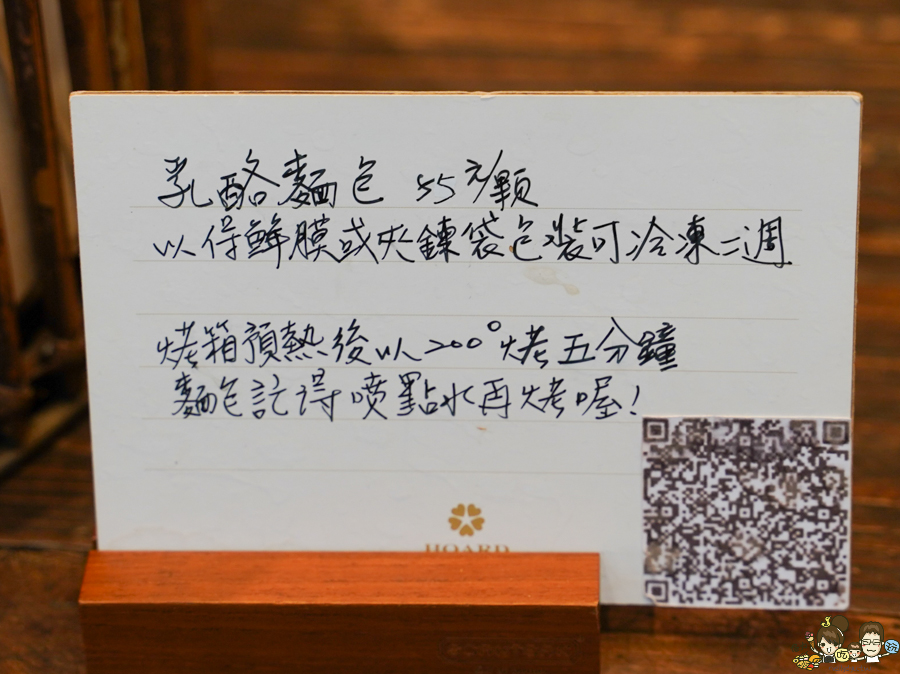 乳酪麵包 55元/顆
以保鮮膜或夾鍊袋包裝可冷凍二週
烤箱預熱後以200°烤五分鐘
麵包記得噴點水再烤喔!
HOARD